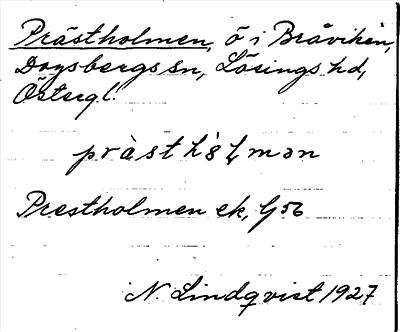 Prästholmen, ö i Bråviken,
Dagsbergs sn, Lösings hd,
Östergl.
Prestholmen ek, G 56
N. Lindqvist 1927